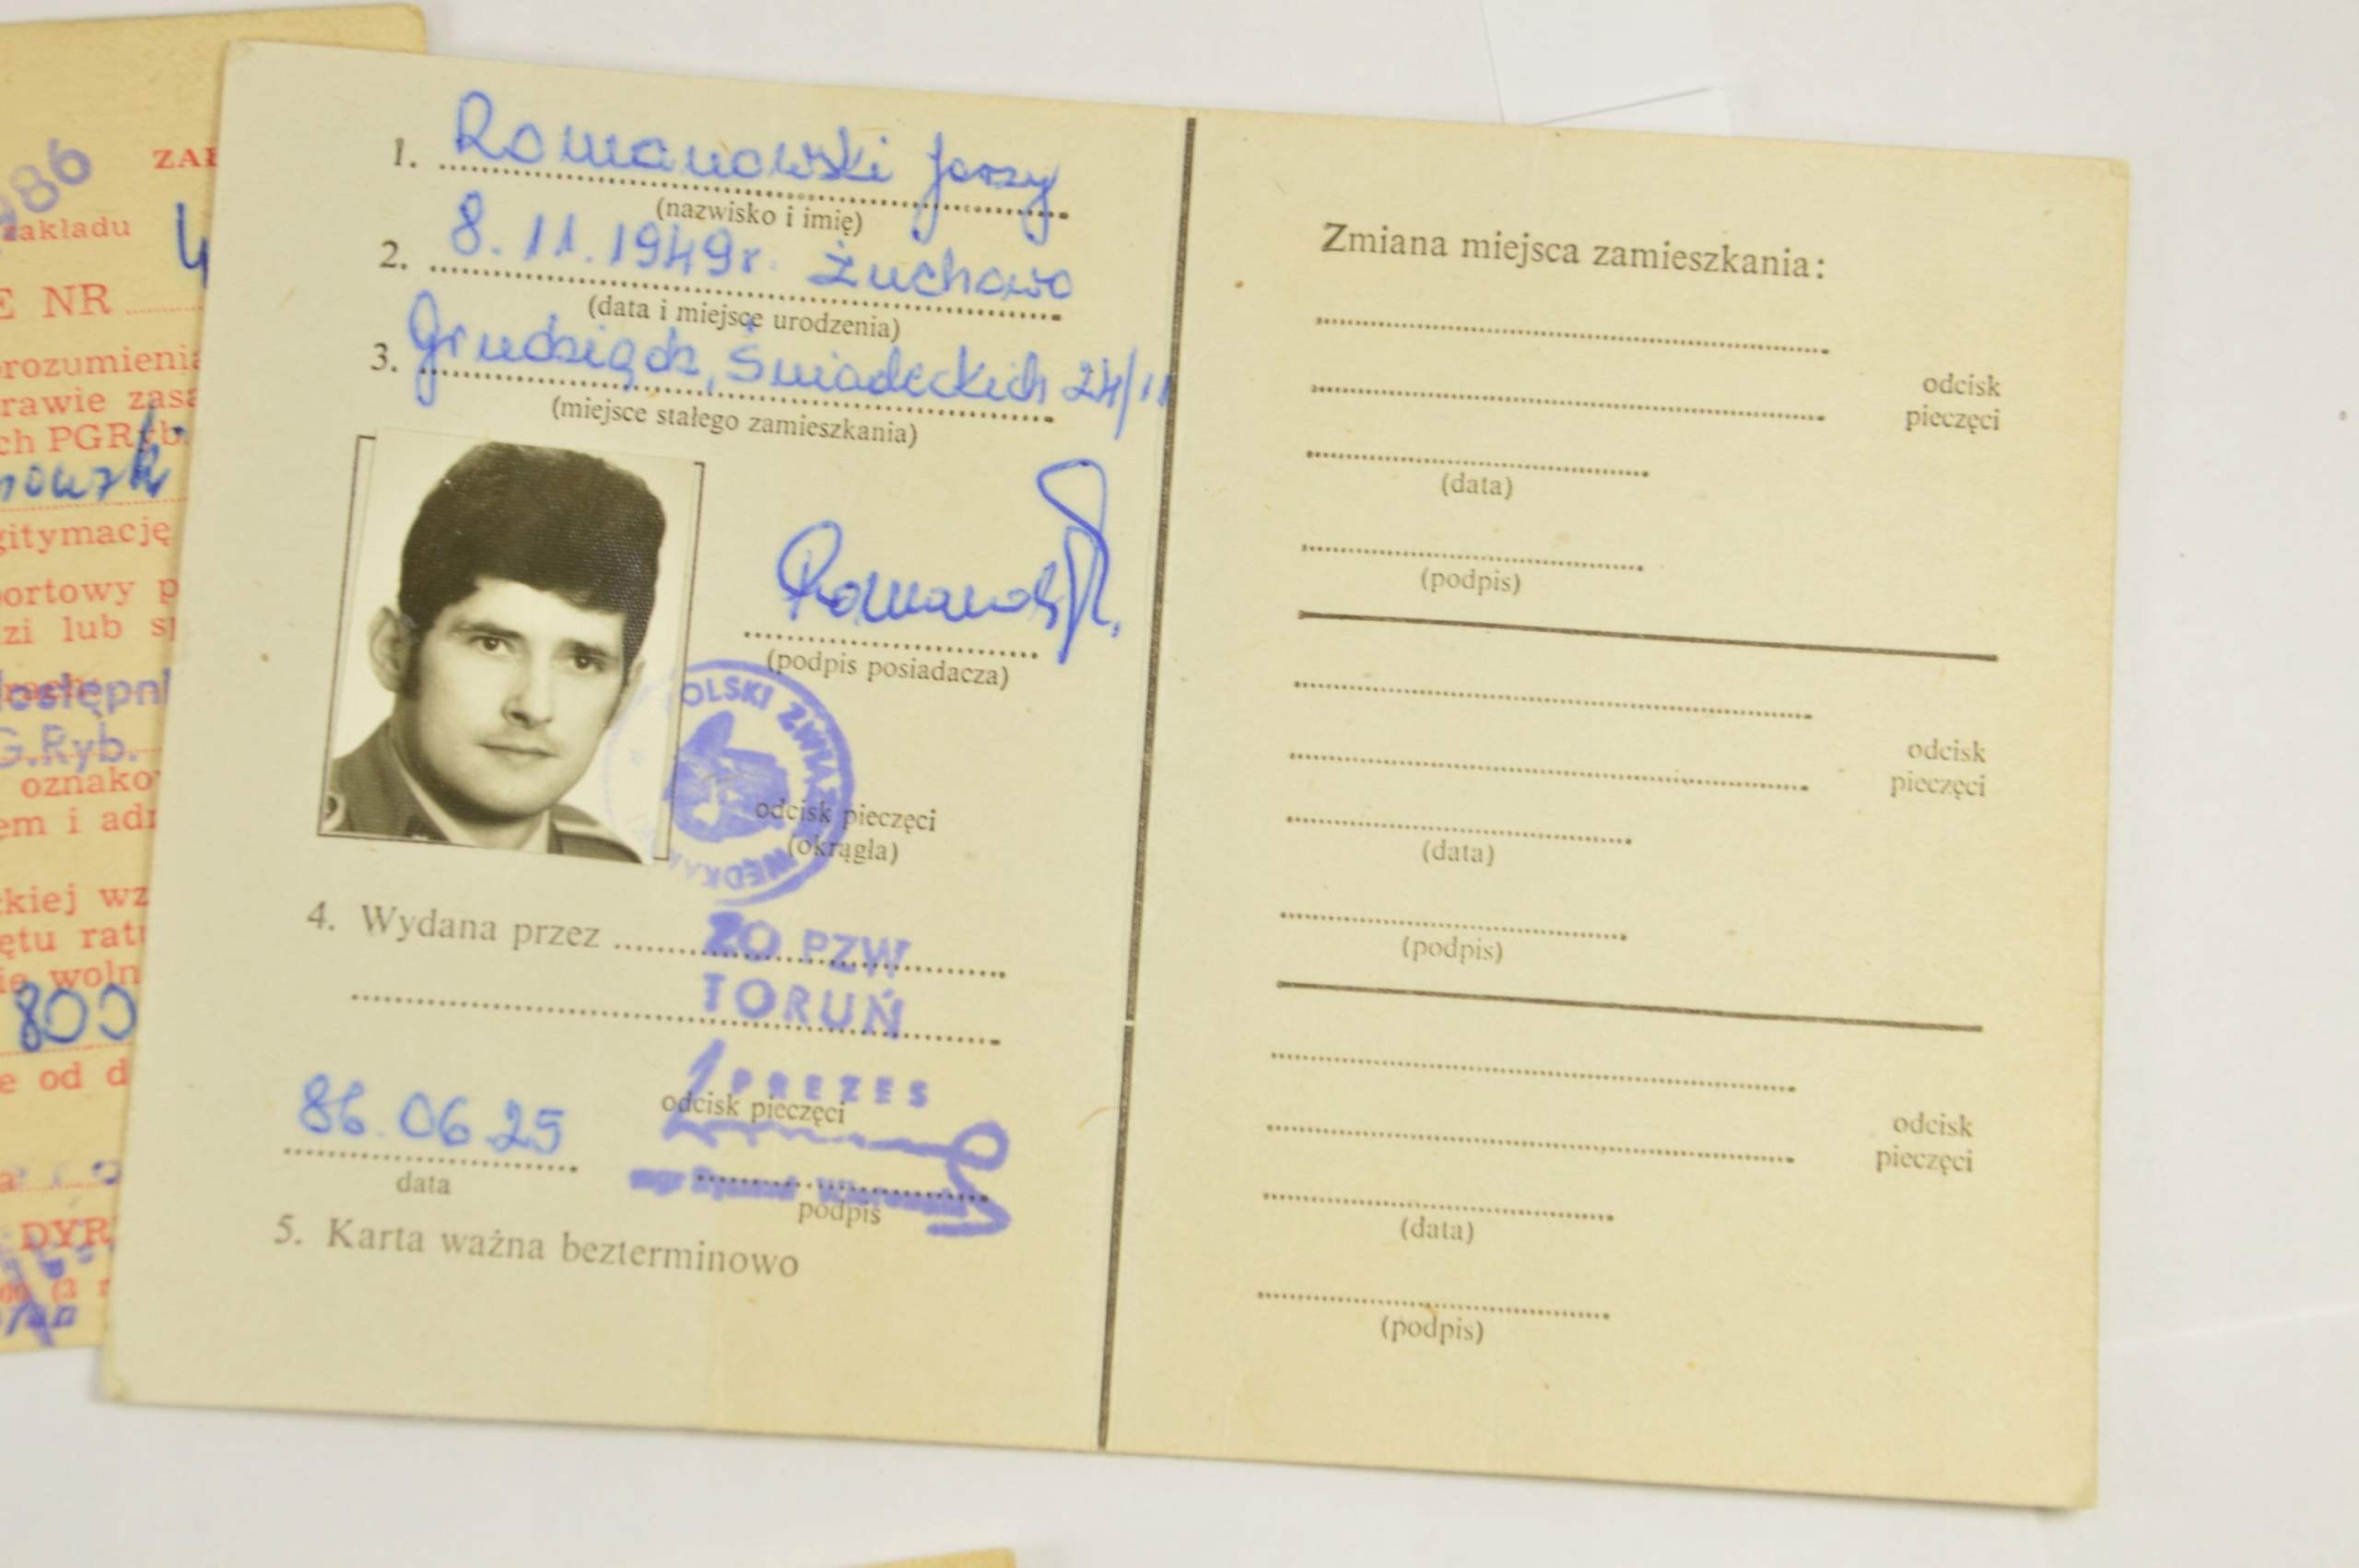 986
ZAŁ
zakładu
4
E NR
orozumienia
rawie zasa
ch PGRyb.
nowsk
gitymację
portowy p
zi lub sp
dostępni
G.Ryb.
oznako
em i adr
ckiej wz
ętu rat
ie woln
800
e od d
DYR
1. Romanowski Jerzy
(nazwisko i imię)
2. 8.11.1949r. Żuchowo
(data i miejsce urodzenia)
3. Grudziądz, Śniadeckich 24/11
(miejsce stałego zamieszkania)
Romanowski
(podpis posiadacza)
POLSKI ZWIĄZEK WĘDKARSKI
odcisk pieczęci
(okrągła)
4. Wydana przez ZO PZW
TORUŃ
PREZES
odcisk pieczęci
86.06.25
data
mgr
podpis
5. Karta ważna bezterminowo
Zmiana miejsca zamieszkania:
odcisk
pieczęci
(data)
(podpis)
odcisk
pieczęci
(data)
(podpis)
odcisk
pieczęci
(data)
(podpis)